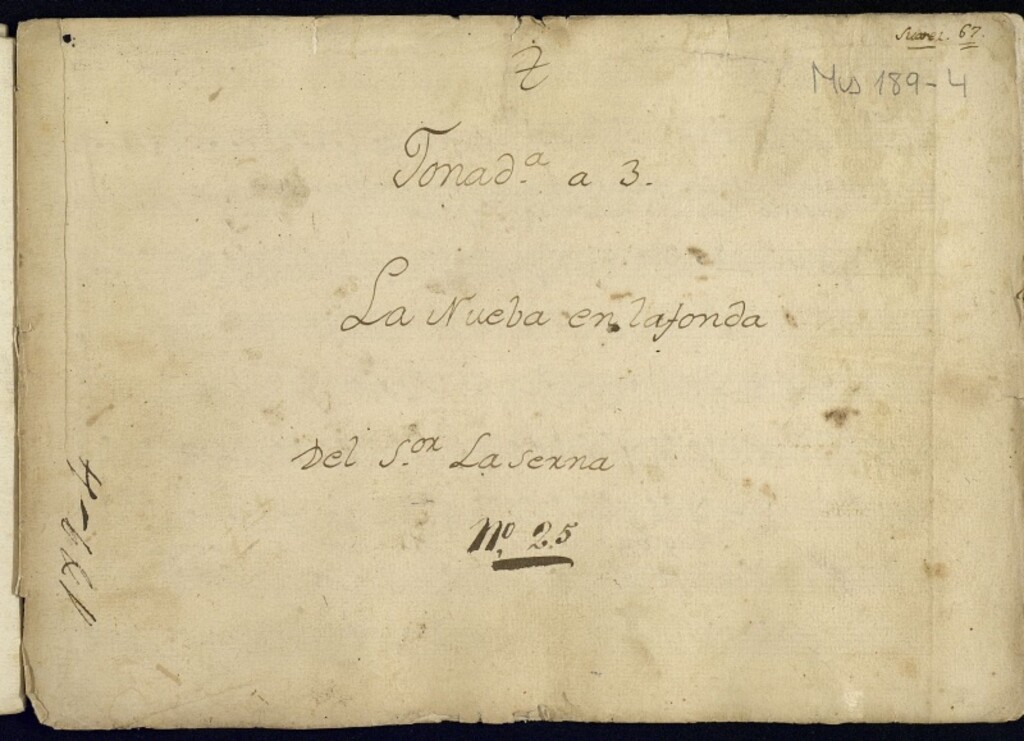 Suarez. 67.
Mus 189-4
Tonad.ª a 3.
La Nueba en la fonda
Del S.or Laserna
Nº, 25